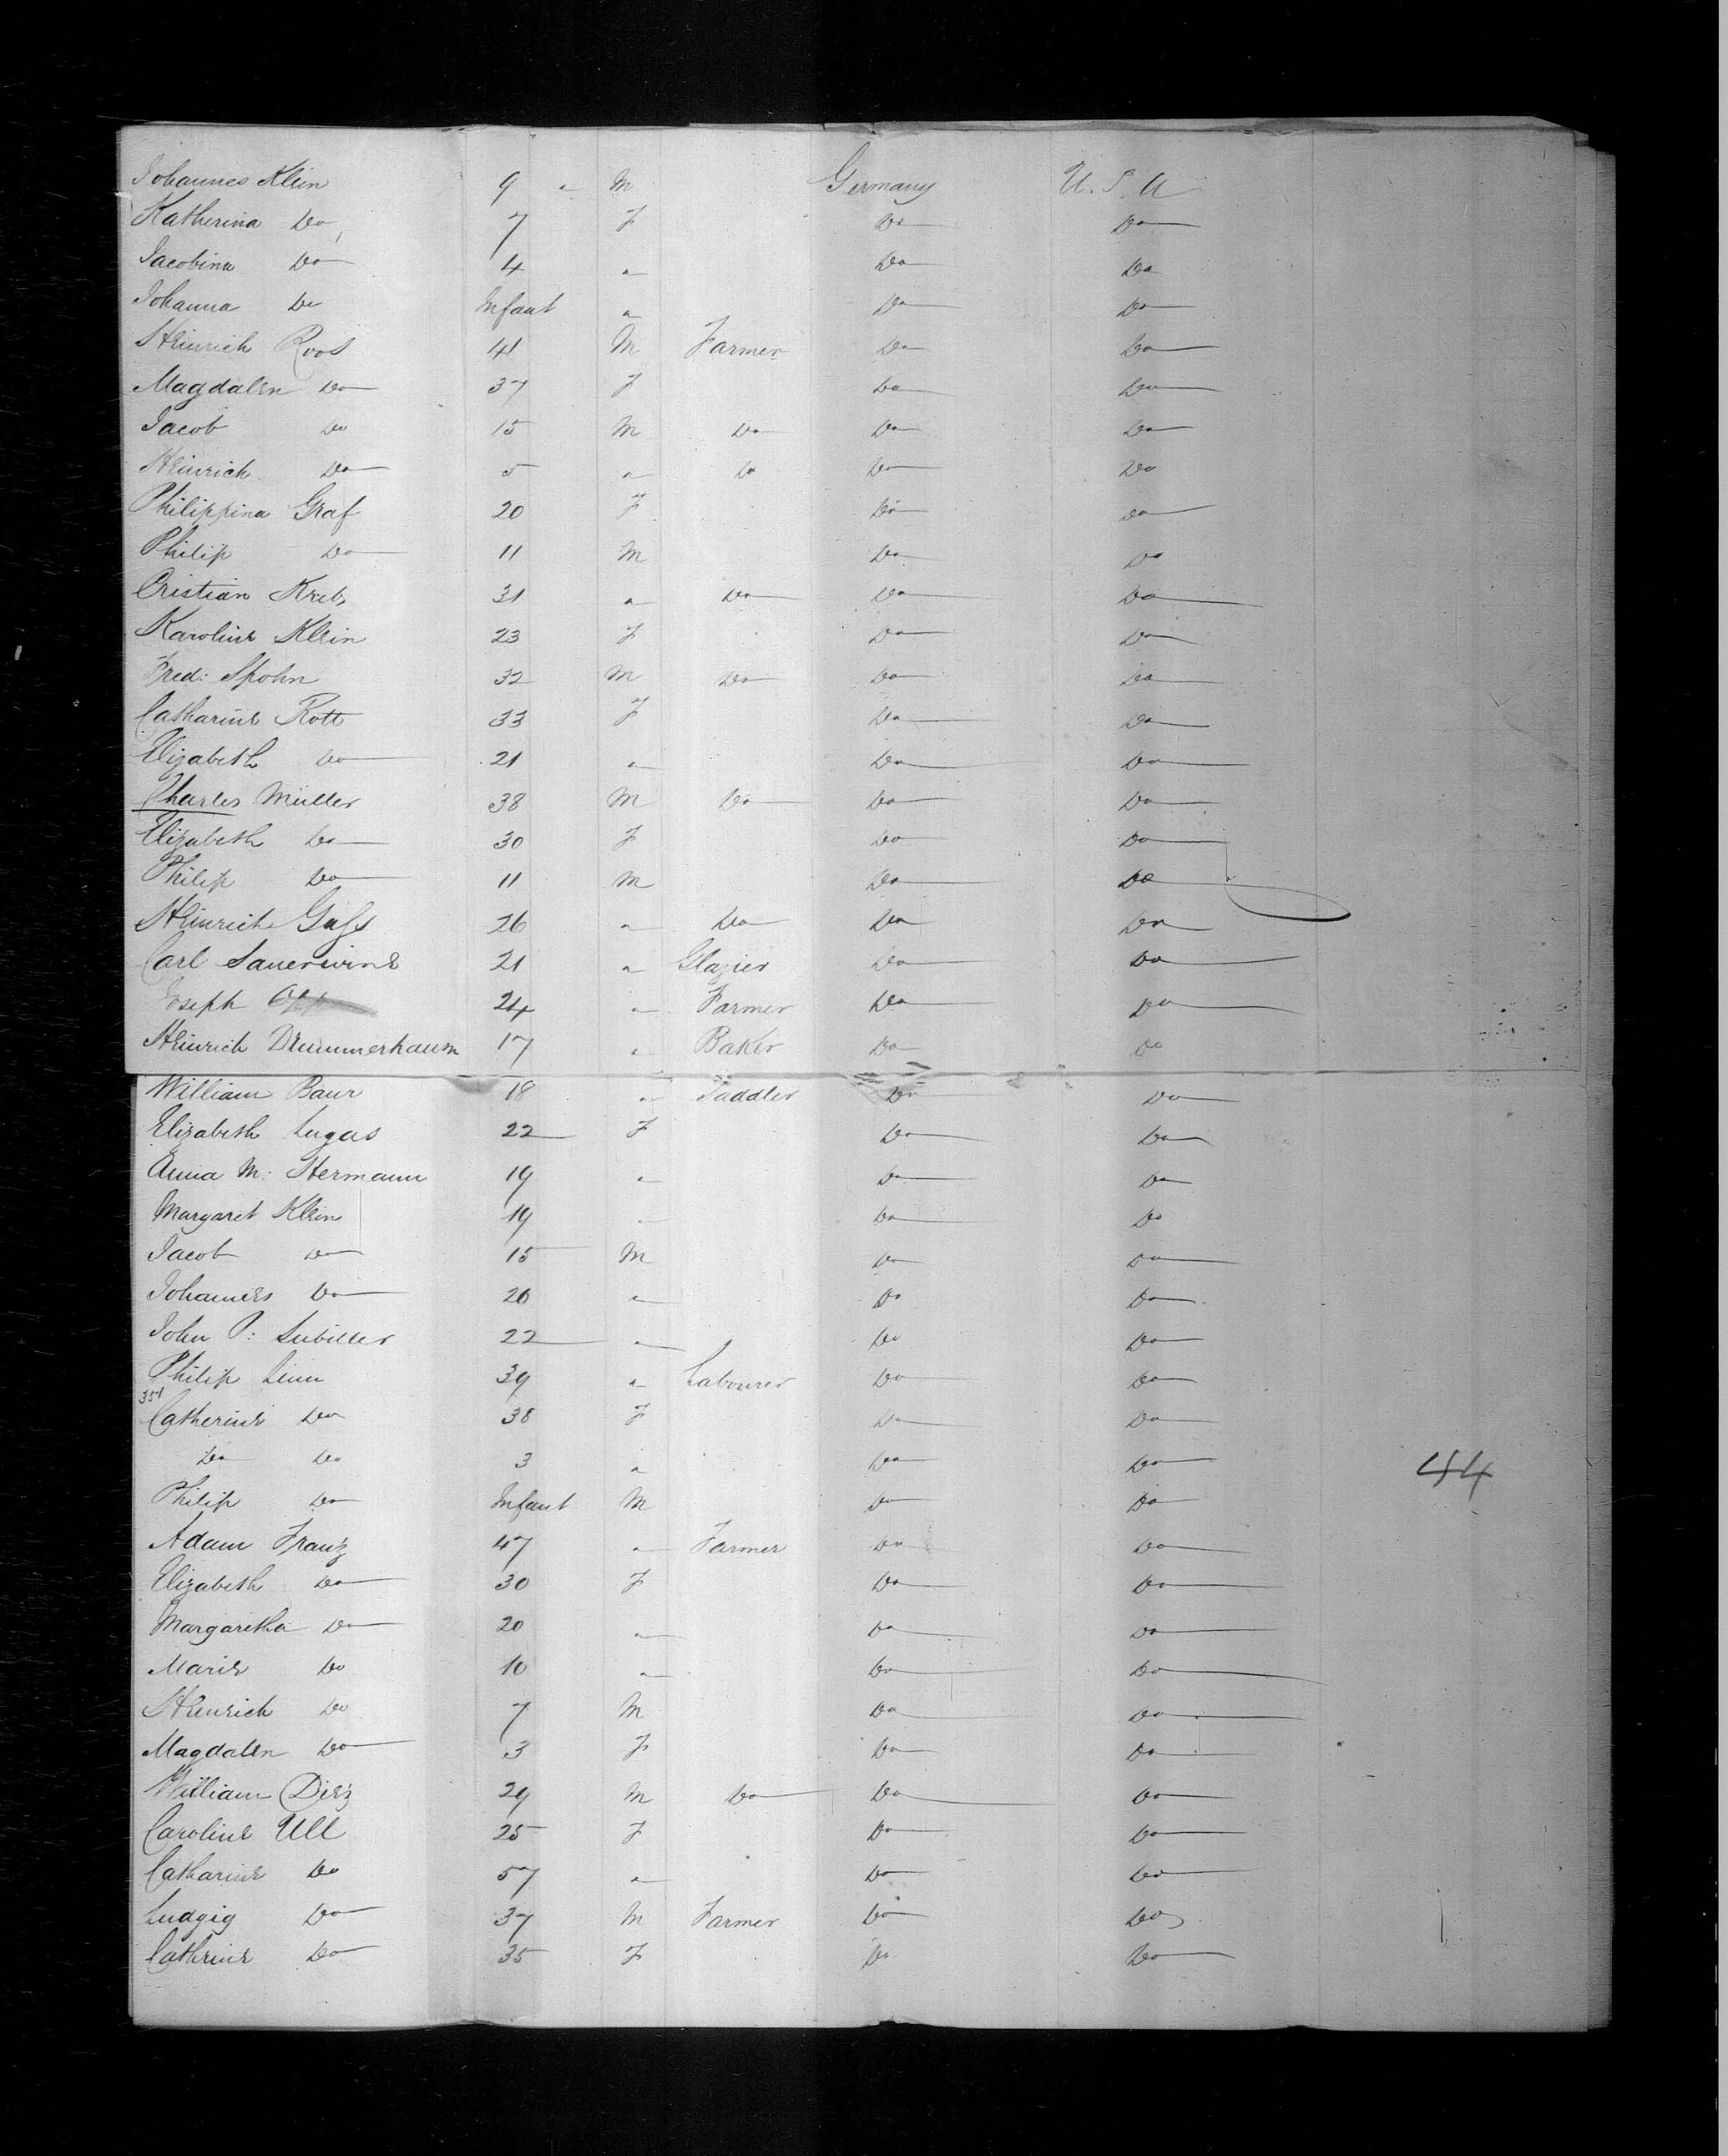 Johannes Klein 9 " M Germany U.S.A
Katherina Do 7 F Do Do
Jacobina Do 4 " Do Do
Johanna Do Infant " Do Do
Heinrich Roos 41 M Farmer Do Do
Magdalen Do 37 F Do Do
Jacob Do 15 M Do Do Do
Heinrich Do 5 " Do Do Do
Philippina Graf 20 F Do Do
Philip Do 11 M Do Do
Cristian Kreb 31 " Do Do Do
Karoline Klein 23 F Do Do
Fred: Spohn 32 M Do Do Do
Catharine Rott 33 F Do Do
Elizabeth Do 21 " Do Do
Charles Müller 38 M Do Do Do
Elizabeth Do 30 F Do Do
Philip Do 11 M Do Do
Heinrich 26 " Do Do Do
Carl Sauerwine 21 " Glazier Do Do
Joseph Opp 24 " Farmer Do Do
Heinrich 17 " Baker Do Do
William Baur 18 " Saddler Do Do
Elizabeth Lugas 22 F Do Do
Anna M. Hermann 19 " Do Do
Margaret Klein 19 " Do Do
Jacob Do 15 M Do Do
Johannes Do 26 " Do Do
John P: 22 " Do Do
Philip Linn 39 " Labourer Do Do
351
Catherine Do 38 F Do Do
Do Do 3 " Do Do
44
Philip Do Infant M Do Do
Adam Franz 47 " Farmer Do Do
Elizabeth Do 30 F Do Do
Margaretha Do 20 " Do Do
Marie Do 10 " Do Do
Heinrich Do 7 M Do Do
Magdalen Do 3 F Do Do
William Diez 29 M Do Do Do
Caroline Ull 25 F Do Do
Catharine Do 57 " Do Do
Ludgig Do 37 M Farmer Do Do
Cathrine Do 35 F Do Do